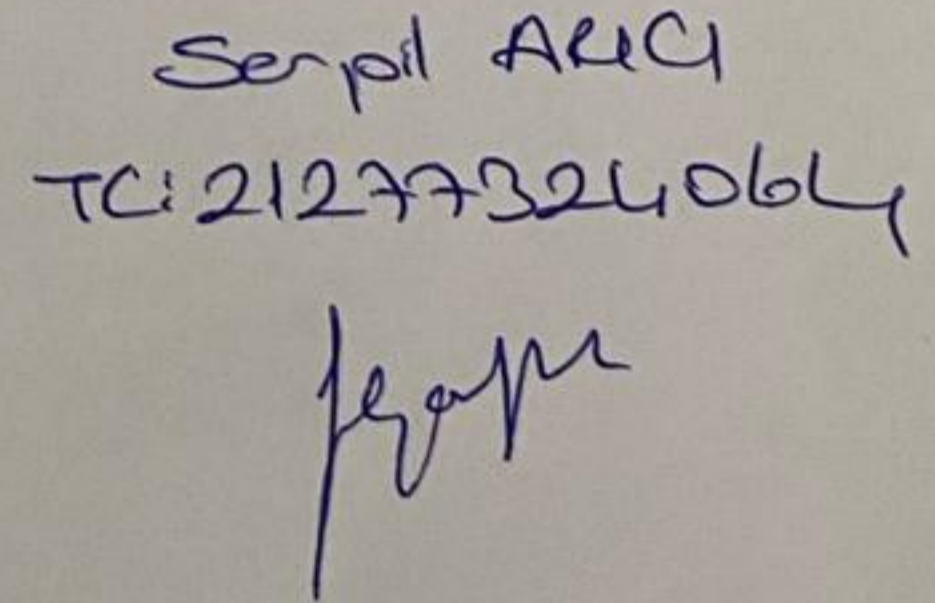 Serpil ARICI
TC: 21277324064